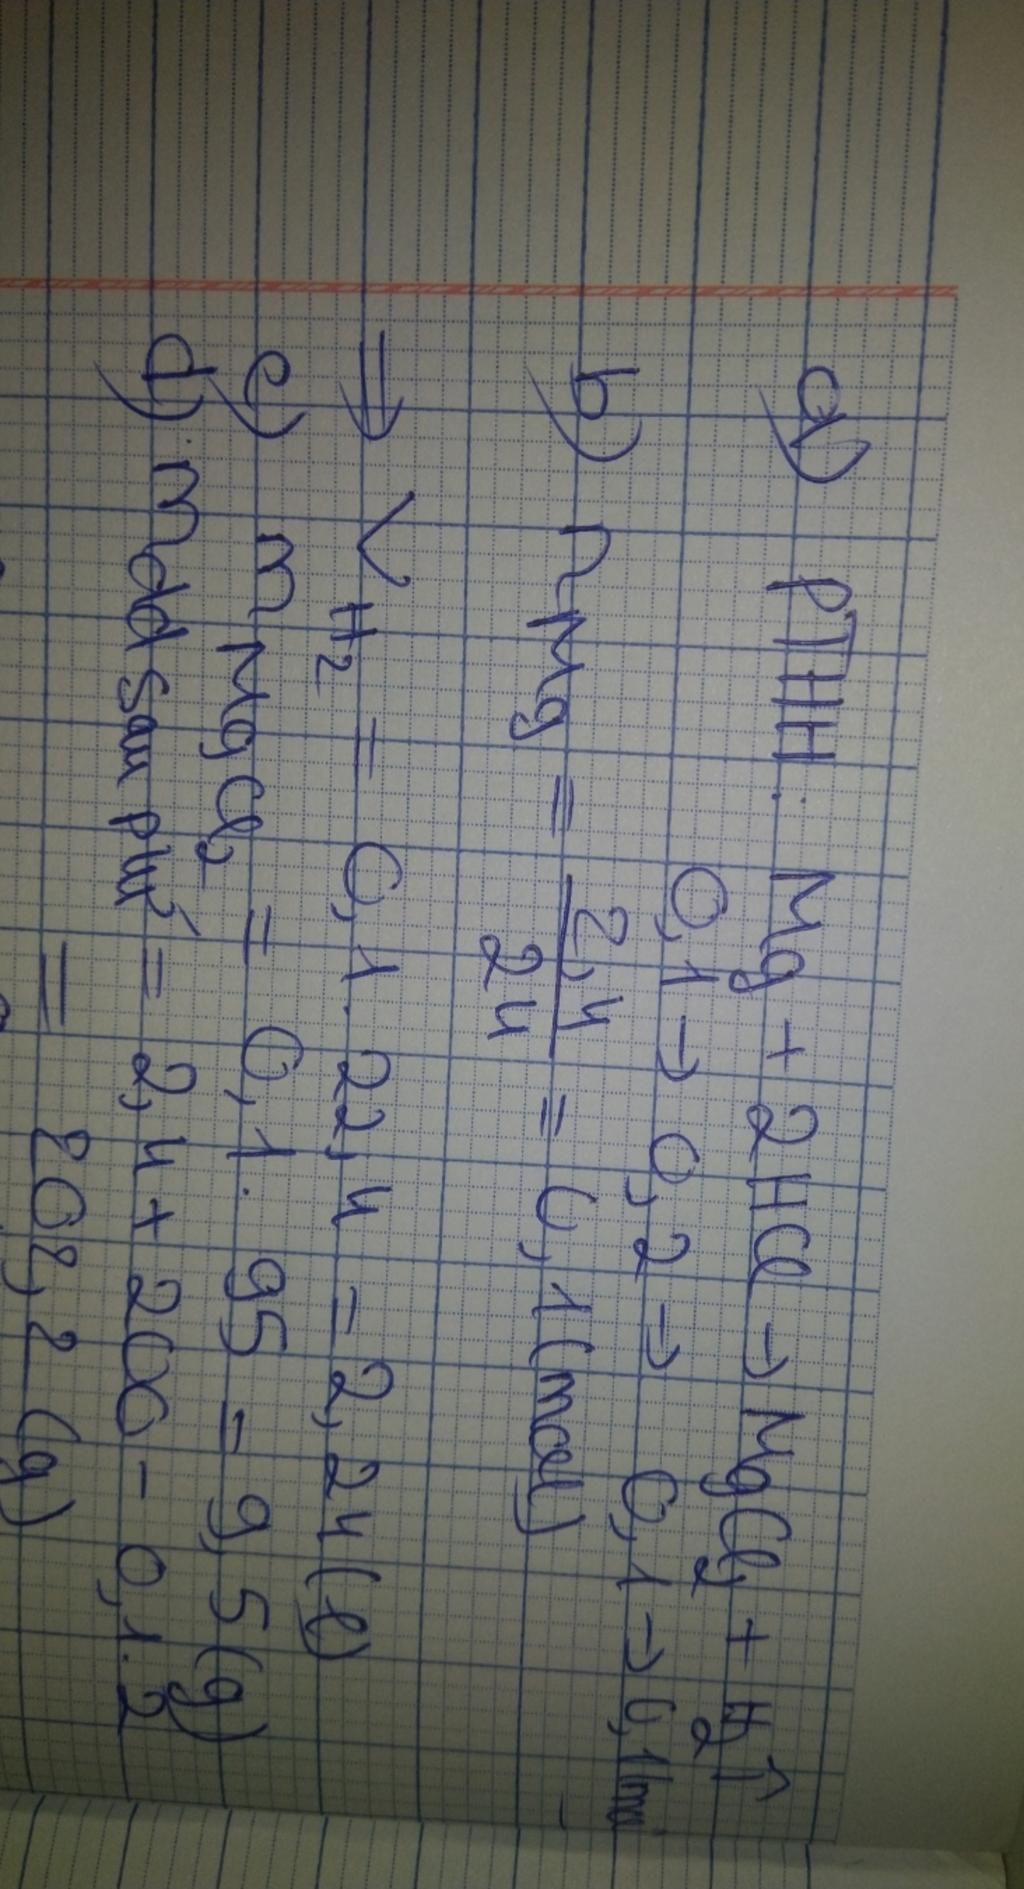 a) PTHH: Mg + 2HCl → MgCl2 + H2 ↑
0,1 → 0,2 → 0,1 → 0,1 mol
b) nMg = 2,4/24 = 0,1 (mol)
⇒ VH2 = 0,1. 22,4 = 2,24 (l)
c) mMgCl2 = 0,1. 95 = 9,5 (g)
d) mdd sau pứ = 2,4 + 200 - 0,1.2
= 202,2 (g)